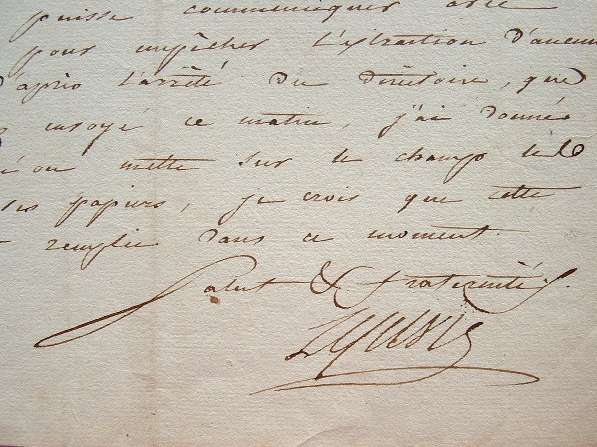 puisse communiquer avec
pour empêcher l'extraction d'aucun
d'après l'arrêté du directoire, que
envoyé ce matin, j'ai donné
on mette sur le champ le
les papiers, je crois que cette
remplie dans ce moment.
Salut & fraternité.